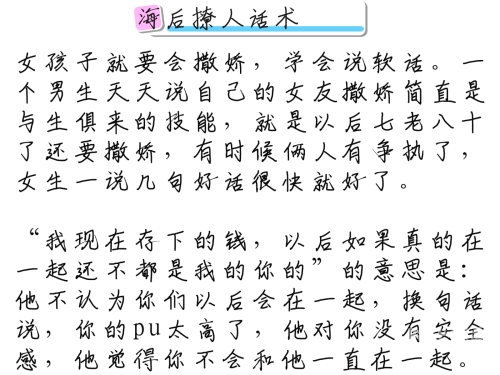 海后撩人话术
女孩子就要会撒娇，学会说软话。一
个男生天天说自己的女友撒娇简直是
与生俱来的技能，就是以后七老八十
了还要撒娇，有时候俩人有争执了，
女生一说几句好话很快就好了。
“我现在存下的钱，以后如果真的在
一起还不都是我的你的”的意思是：
他不认为你们以后会在一起，换句话
说，你的pu太高了，他对你没有安全
感，他觉得你不会和他一直在一起。